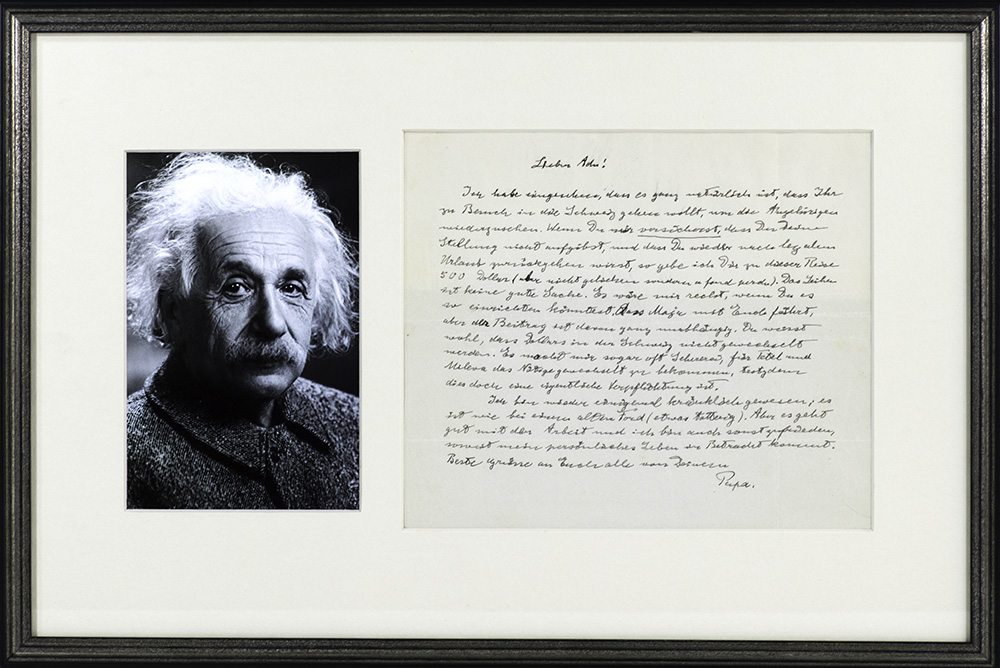 Lieber Adu!
Ich habe eingesehen, dass es ganz natürlich ist, dass Ihr
zu Besuch in die Schweiz gehen wollt, um die Angehörigen
wiederzusehen. Wenn Du mir versicherst, dass Du Deine
Stellung nicht aufgibst, und dass Du wieder nach legalem
Urlaub zurückgehen wirst, so gebe ich Dir zu dieser Reise
500 Dollar (aber nicht geliehen sondern a fond perdu). Das Leihen
ist keine gute Sache. Es wäre mir recht, wenn Du es
so einrichten könntest, dass Maja mit Euch fährt,
aber der Beitrag ist davon ganz unabhängig. Du weisst
wohl, dass Dollars in der Schweiz nicht gewechselt
werden. Es macht mir sogar oft Scherereien, für Tetel und
Mileva das Nötige gewechselt zu bekommen, trotzdem
dies doch eine eigentliche Verpflichtung ist.
Ich bin wieder einigemal kränklich gewesen; es
ist wie bei einem alten Ford (etwas klapperig). Aber es geht
gut mit der Arbeit und ich bin auch sonst zufrieden,
soweit mein persönliches Leben in Betracht kommt.
Beste Grüsse an Euch alle von Deinem
Papa.